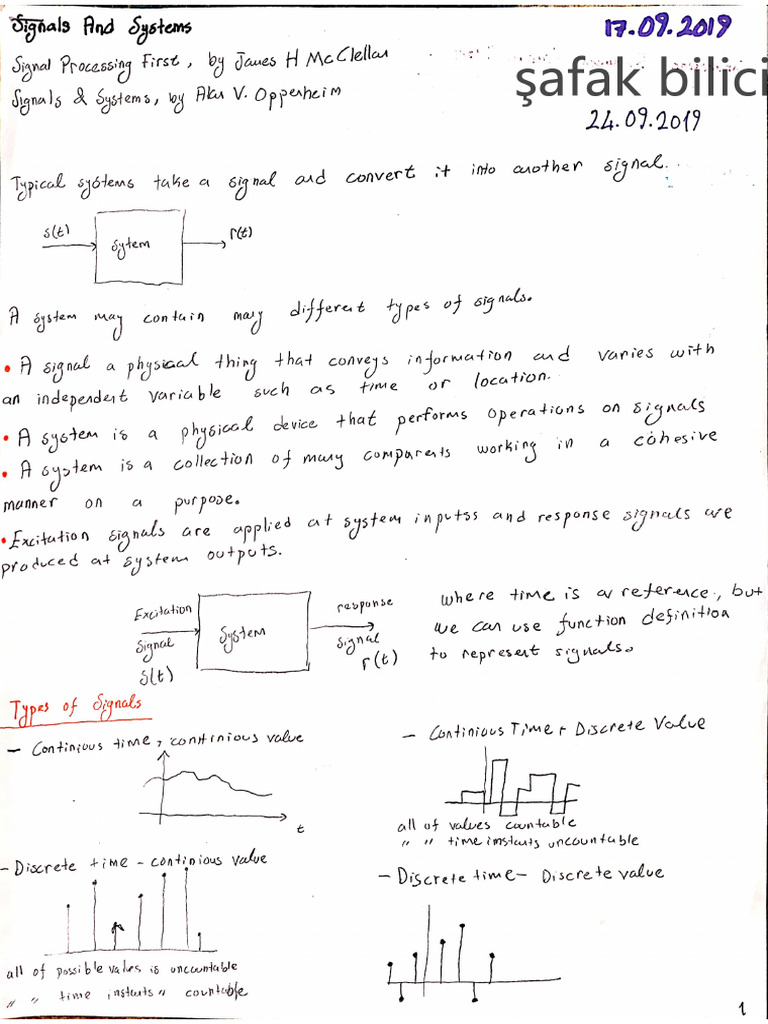 Signals And Systems
17.09.2019
Signal Processing First, by James H McClellan
şafak bilici
Signals & Systems, by Alan V. Oppenheim
24.09.2019
Typical systems take a signal and convert it into another signal.
s(t)
Sytem
r(t)
A system may contain many different types of signals.
• A signal a physical thing that conveys information and varies with
an independent variable such as time or location.
• A system is a physical device that performs operations on signals
• A system is a collection of many components working in a cohesive
manner on a purpose.
• Excitation signals are applied at system inputss and response signals are
produced at system outputs.
Excitation
Signal
s(t)
System
response
signal
r(t)
where time is a reference, but
we can use function definition
to represent signals.
Types of Signals
- Continious time, continious value
t
- Continious Time + Discrete Value
all of values countable
" " time instants uncountable
- Discrete time - continious value
all of possible values is uncountable
" " time instants " countable
- Discrete time - Discrete value
1